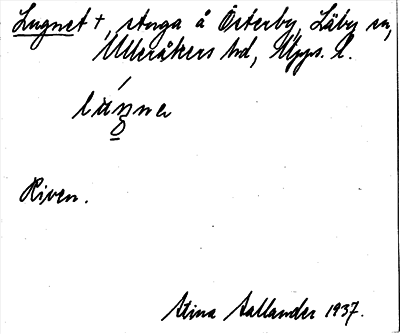 Lugnet +, stuga å Österby, Läby sn,
Ulleråkers hd, Upps. l.
Riven.
Stina Sallander 1937.